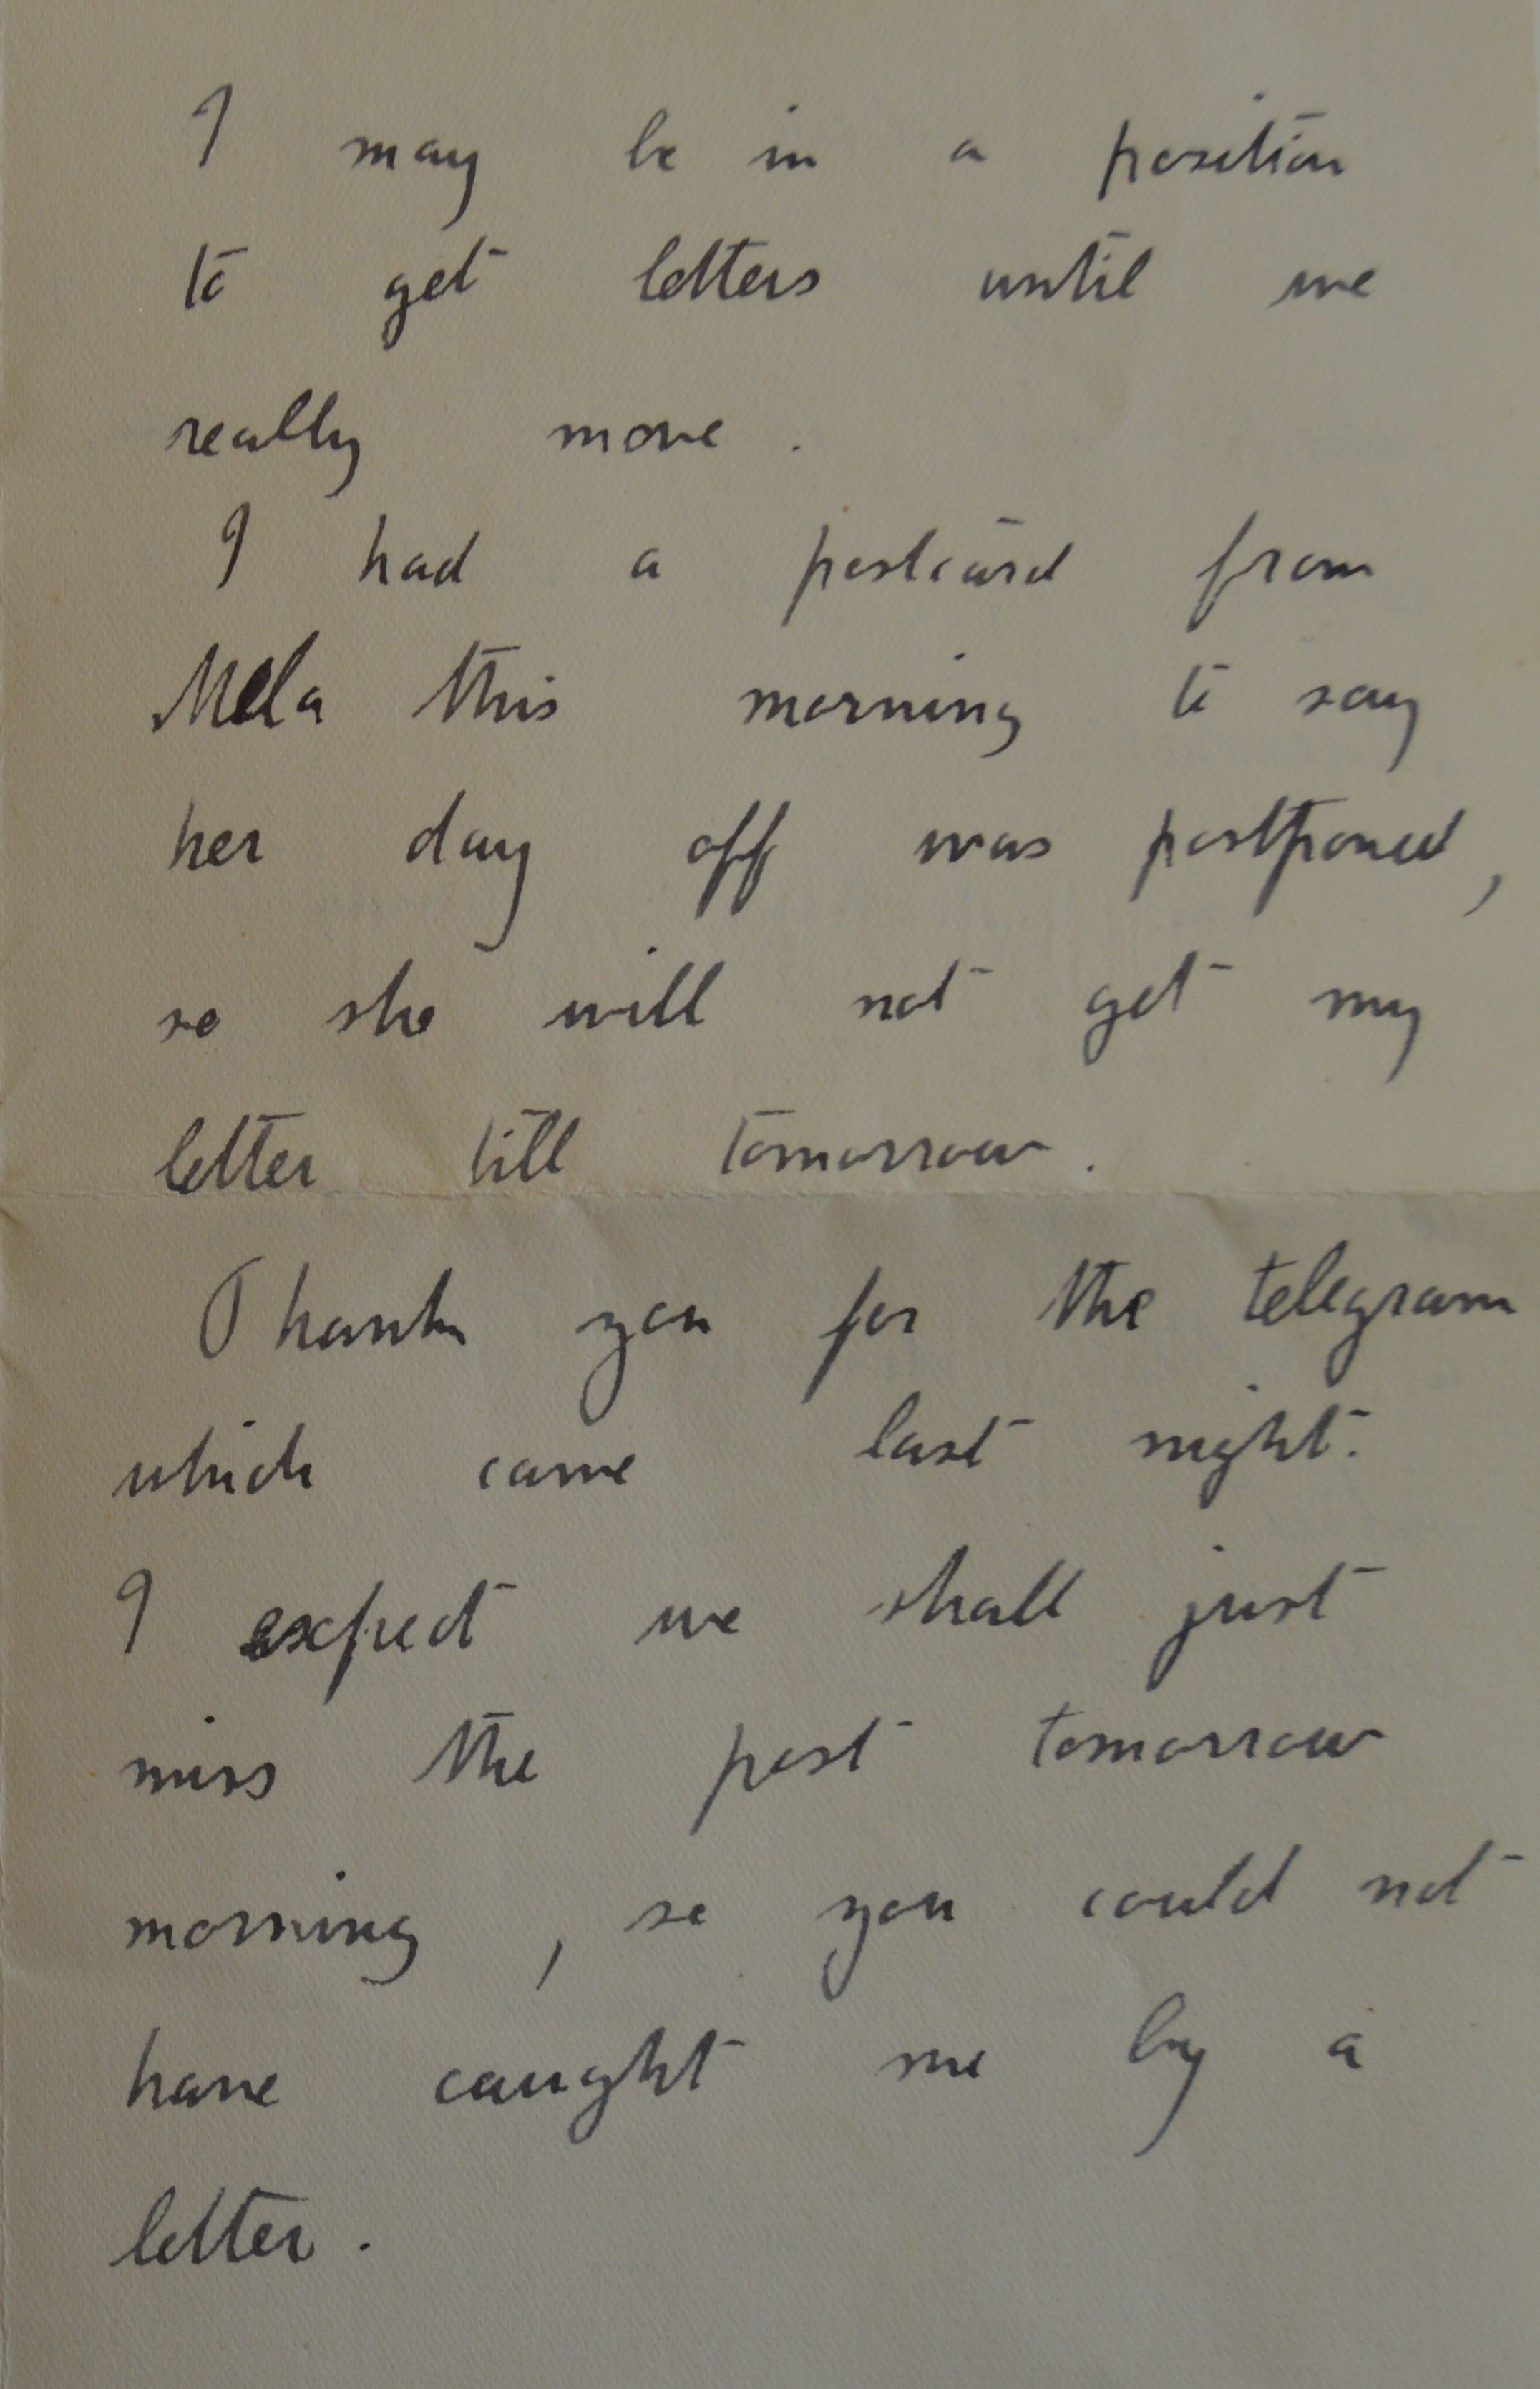 I may be in a position
to get letters until we
really move.
I had a postcard from
Mela this morning to say
her day off was postponed,
so she will not get my
letter till tomorrow.
Thank you for the telegram
which came last night.
I expect we shall just
miss the post tomorrow
morning, so you could not
have caught me by a
letter.